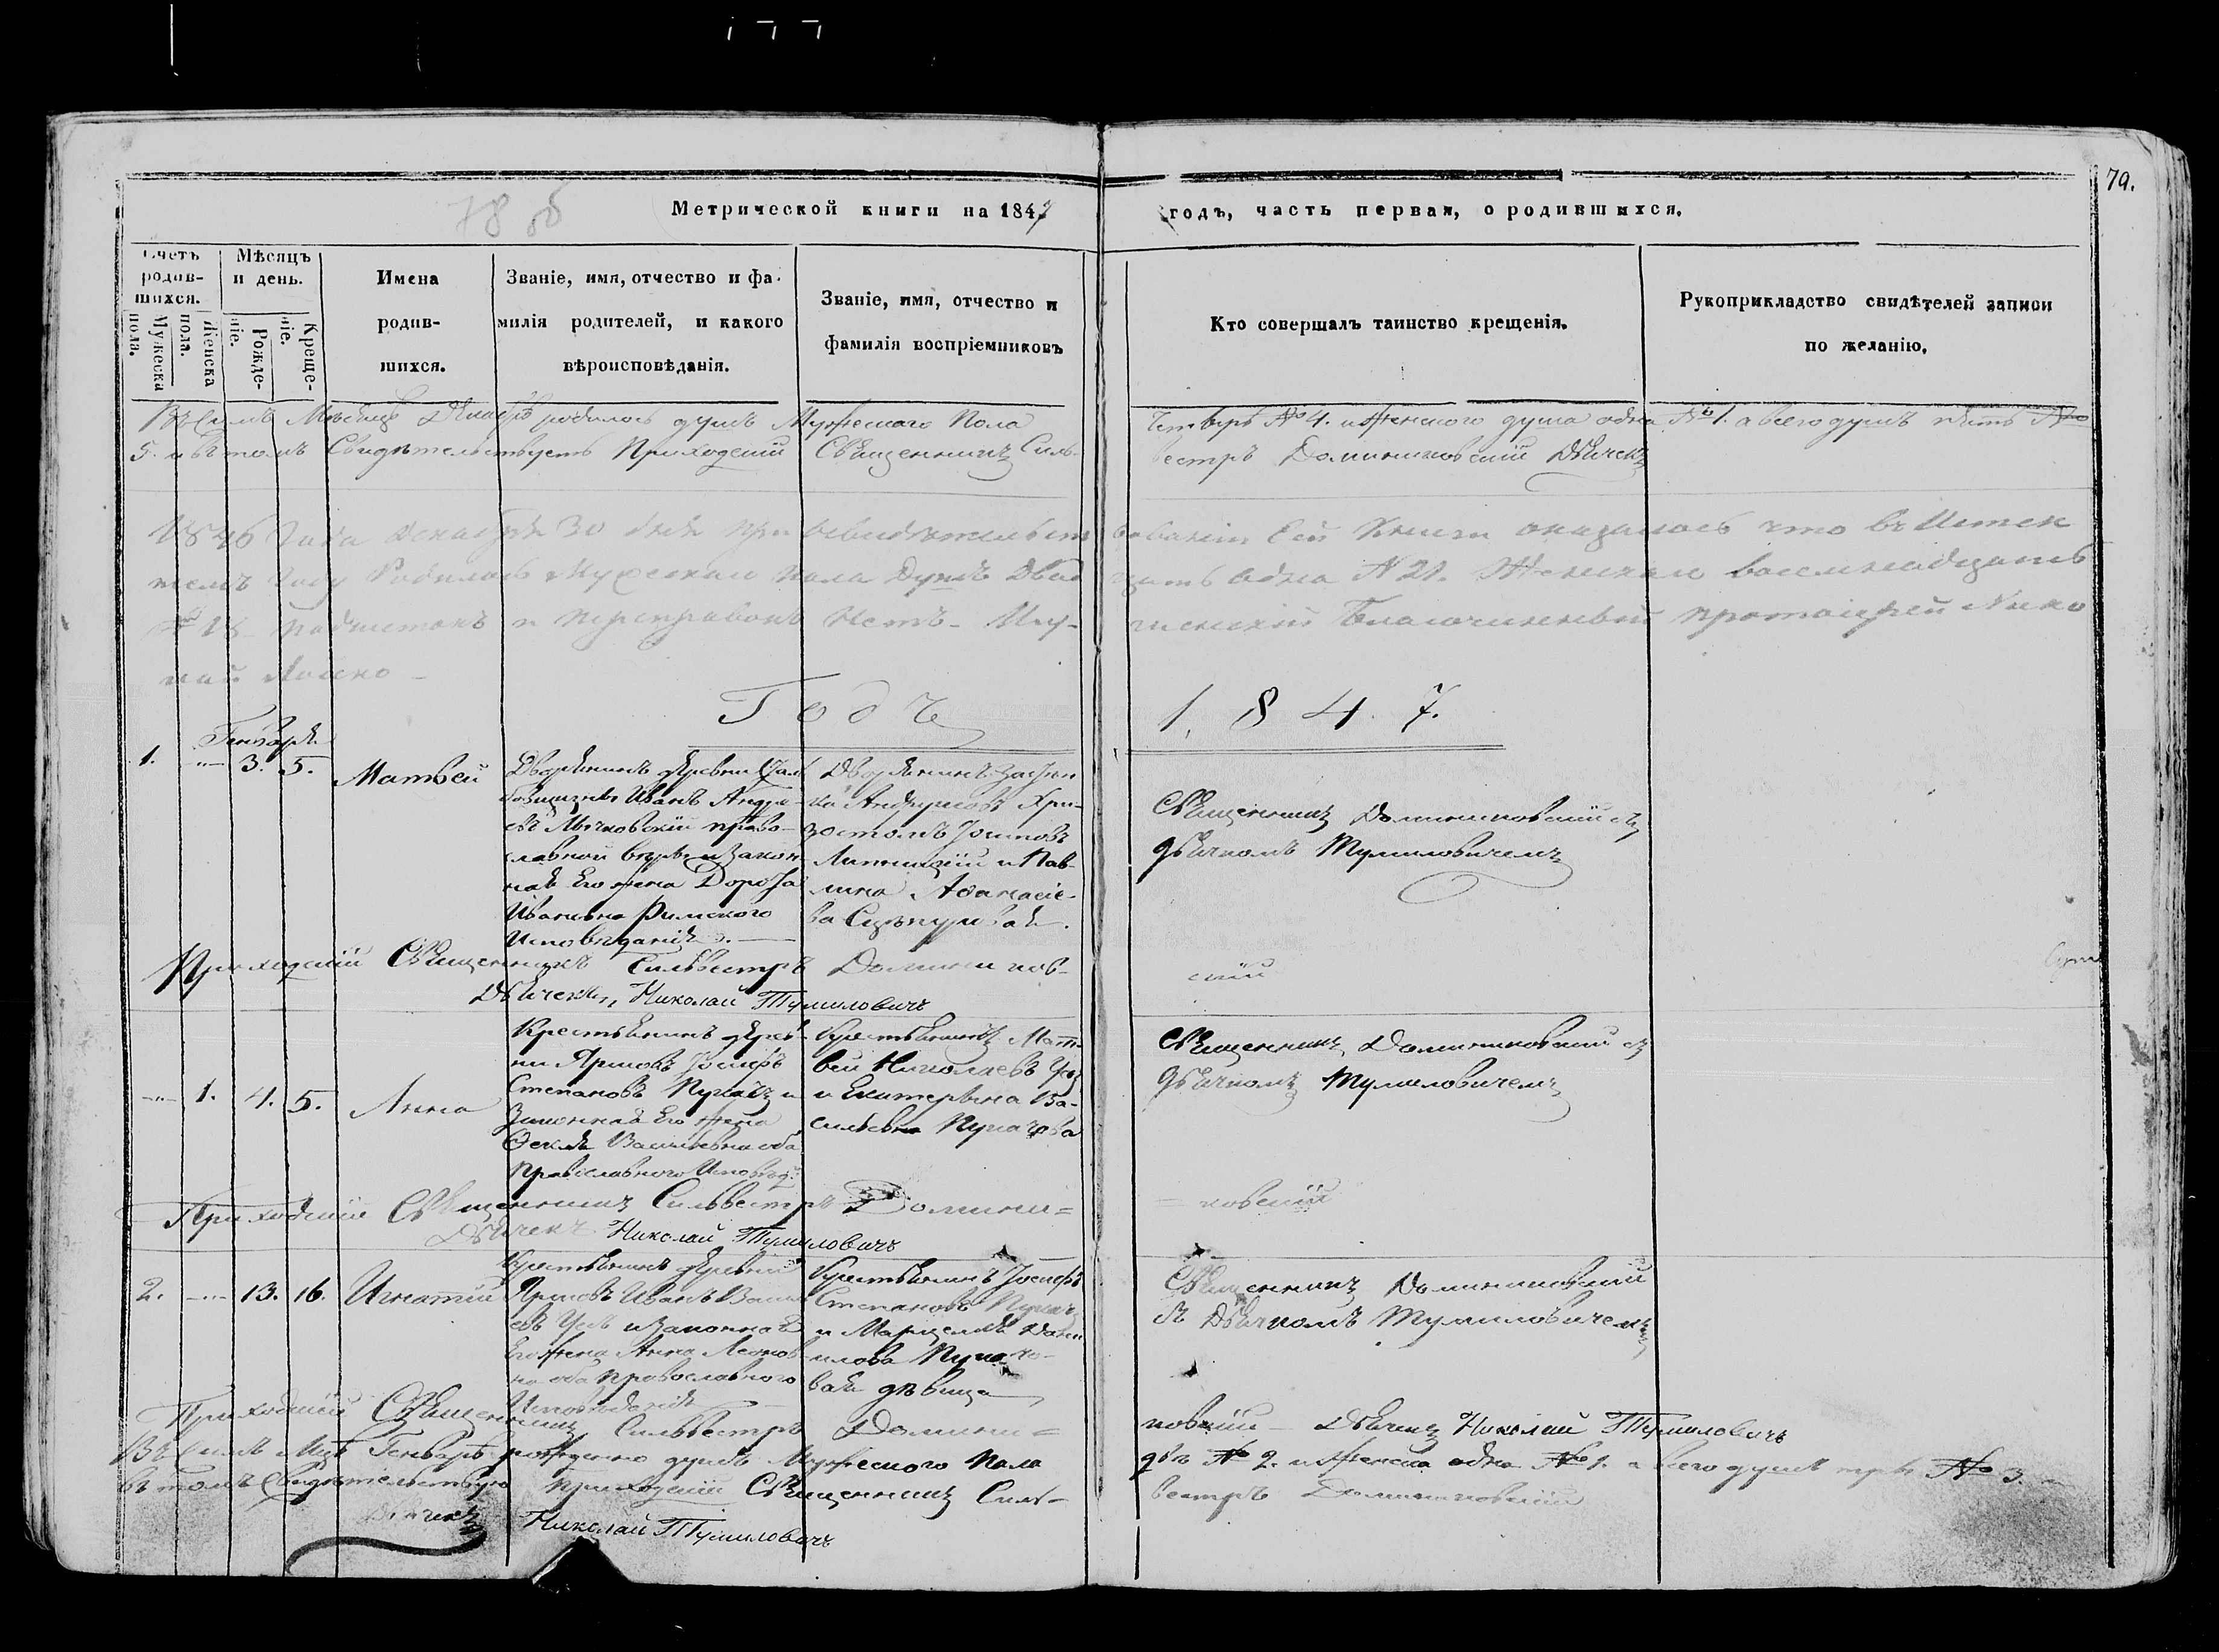 79.
78 об
Метрической книги на 1847 годъ, часть первая, о родившихся.
Счетъ родив-шихся.
Мужеска пола.
Женска пола.
Мѣсяцъ и день.
Рожде-ніе.
Креще-ніе.
Имена родив-шихся.
Званіе, имя, отчество и фа-милія родителей, и какого вѣроисповѣданія.
Званіе, имя, отчество и фамилія воспріемниковъ
Кто совершалъ таинство крещенія.
Рукоприкладство свидѣтелей записи по желанію.
Въ семъ Мѣсяцѣ Декабрѣ родилось душъ Мужескаго Пола Четыре № 4. и женского душа одна № 1. а всего душъ пять №
5. и въ томъ Свидѣтельствуетъ Приходскій Священникъ Силь-вестръ Доминиковскій Дьячекъ
1846 Года Декабря 30 дня при освидѣтельствованіи сей Книги оказалось что въ Истек
шемъ Году Родилось Мужескаго Пола Душъ Двадцать одна N 21. Женскаго восемнадцать
18 Подчистокъ и Переправокъ Нетъ Благочинный протоіерей Нико
лай
Годъ 1847.
Генваря
1. 3. 5. Матвей
Дворянинъ деревни
Иванъ Андре-
евъ Мычковскій право-
славной вѣры и закон
ная Его жена Дорота
Ивановна Римского
Исповѣданія.
Дворянинъ
Хри-
зостомъ Іосифовъ
Липницкій и Пав-
лина Афанасіе-
ва
Священникъ Доминиковскій съ
дьячкомъ Тумиловичемъ
Приходскій Священникъ Сильвестръ Доминиковскій
Дьячекъ Николай Тумиловичъ
1. 4. 5. Анна
Крестьянинъ дерев-
ни Іосифъ
Степановъ Пугачъ и
Законная Его жена
Васильевна оба
Православного Исповѣд.
Крестьянинъ Мат-
вей Николаевъ
и Екатерина Ва-
сильевна Пугачова
Священникъ Доминиковскій съ
дьячкомъ Тумиловичемъ
Приходскій Священникъ Сильвестръ Домини=
=ковскій
Дьячекъ Николай Тумиловичъ
2. 13. 16. Игнатій
Крестьянинъ деревни
Иванъ Василь
евъ и Законная
Его жена Анна Леонов-
на оба православного
Исповѣданія
Крестьянинъ Іосифъ
Степановъ Пугачъ
и Марцеля Дани
илова Пугачо-
вая дѣвица
Священникъ Доминиковскій
съ Дьячкомъ Тумиловичемъ
Приходскій Священникъ Сильвестръ Домини=
ковскій Дьячекъ Николай Тумиловичъ
Въ семъ Мцѣ Генварѣ рождено душъ Мужеского Пола двѣ № 2. и женска одна № 1. а всего душъ три № 3.
въ томъ свидѣтельствую Приходскій Священникъ Силь-вестръ Доминиковскій
Дьячекъ Николай Тумиловичъ